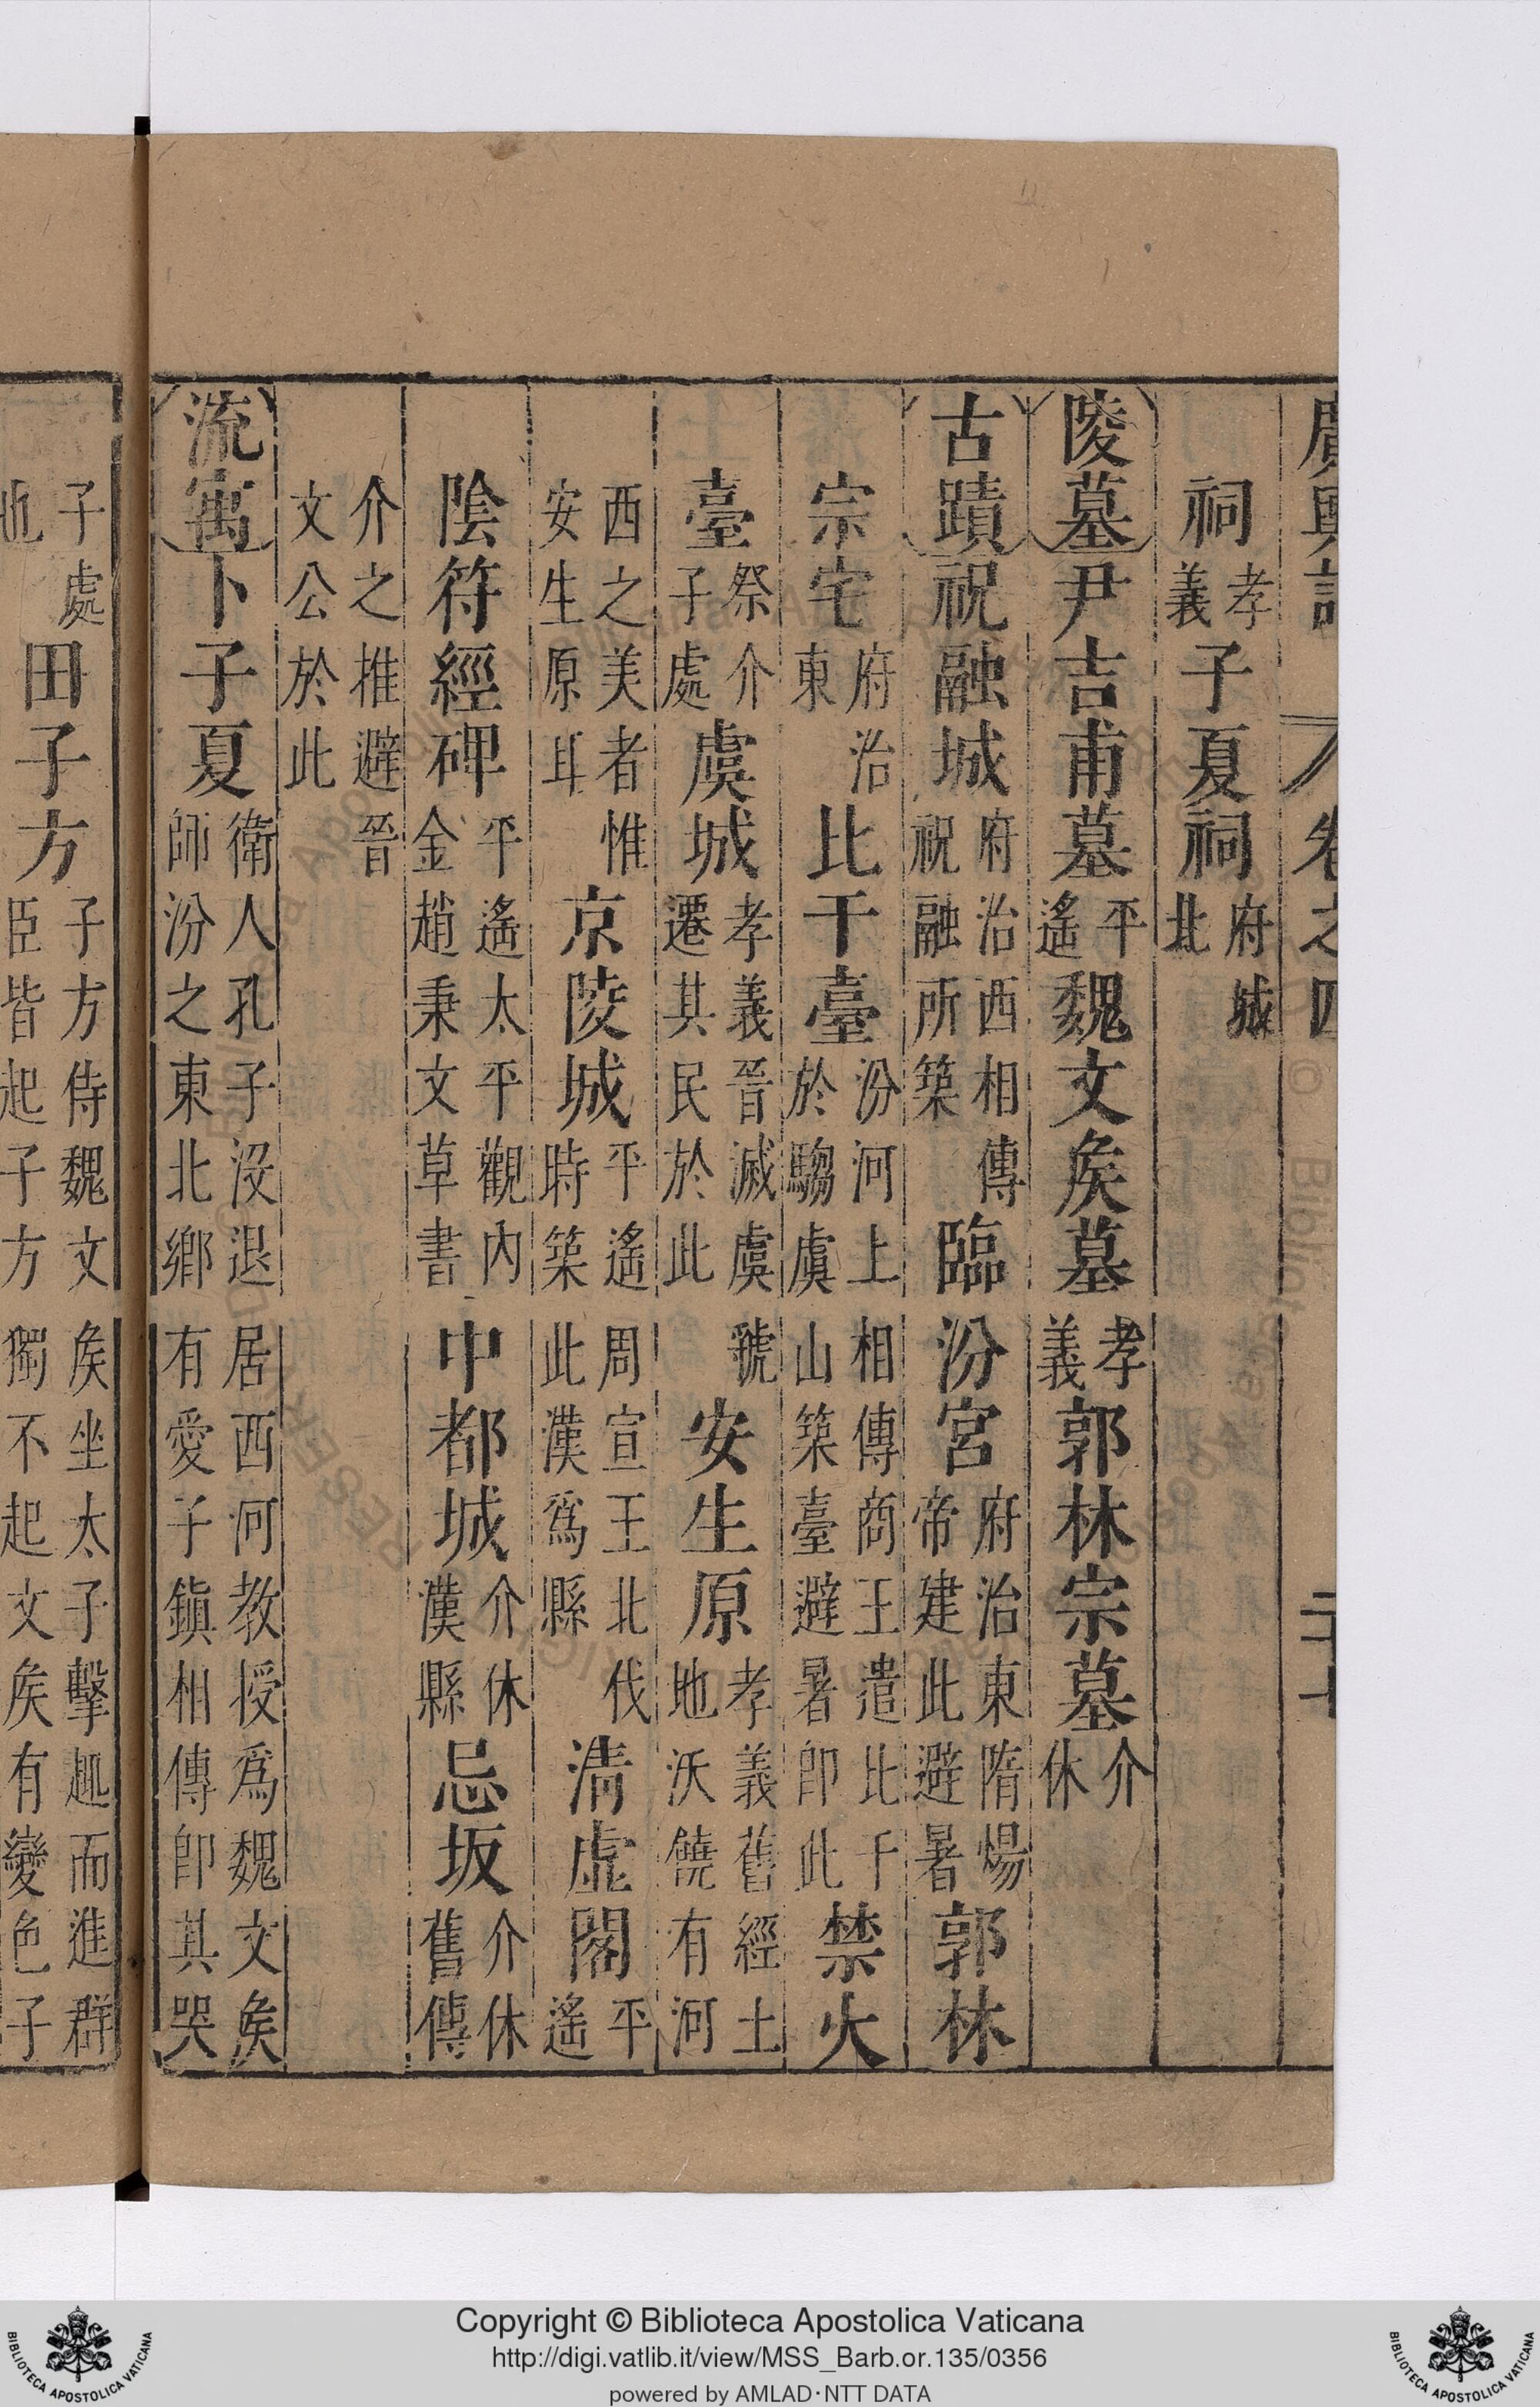 廣輿記 卷之四
祠孝義子夏祠府城北
陵墓尹吉甫墓平遙魏文矦墓孝義郭林宗墓介休
古蹟祝融城府治西相傳祝融所築臨汾宮府治東隋煬帝建此避暑郭林
宗宅府治東比干臺汾河上相傳商王遣比干於騶虞山築臺避暑即此禁火
臺祭介子處虞城孝義晉滅虞虢遷其民於此安生原孝義舊經土地沃饒有河
西之美者惟安生原耳京陵城平遙周宣王北伐時築此漢爲縣清虛閣平遙
陰符經碑平遙太平觀內金趙秉文草書中都城介休漢縣忌坂介休舊傳
介之推避晉文公於此
流寓卜子夏衛人孔子沒退居西河教授爲魏文矦師汾之東北鄉有愛子鎮相傳即其哭
子處田子方子方侍魏文矦坐太子擊趨而進群臣皆起子方獨不起文矦有變色子
Copyright © Biblioteca Apostolica Vaticana
http://digi.vatlib.it/view/MSS_Barb.or.135/0356
powered by AMLAD·NTT DATA
BIBLIOTECA APOSTOLICA VATICANA
BIBLIOTECA APOSTOLICA VATICANA